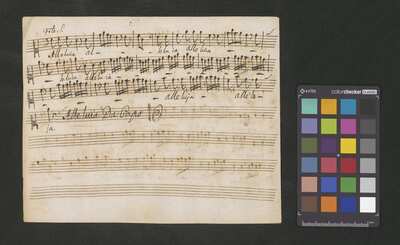 Alleluia al-
le lu ia alleluia
leluia Alleluia
alleluja alle lu-
ja. Alleluia Da Capo
x-rite
colorchecker CLASSIC